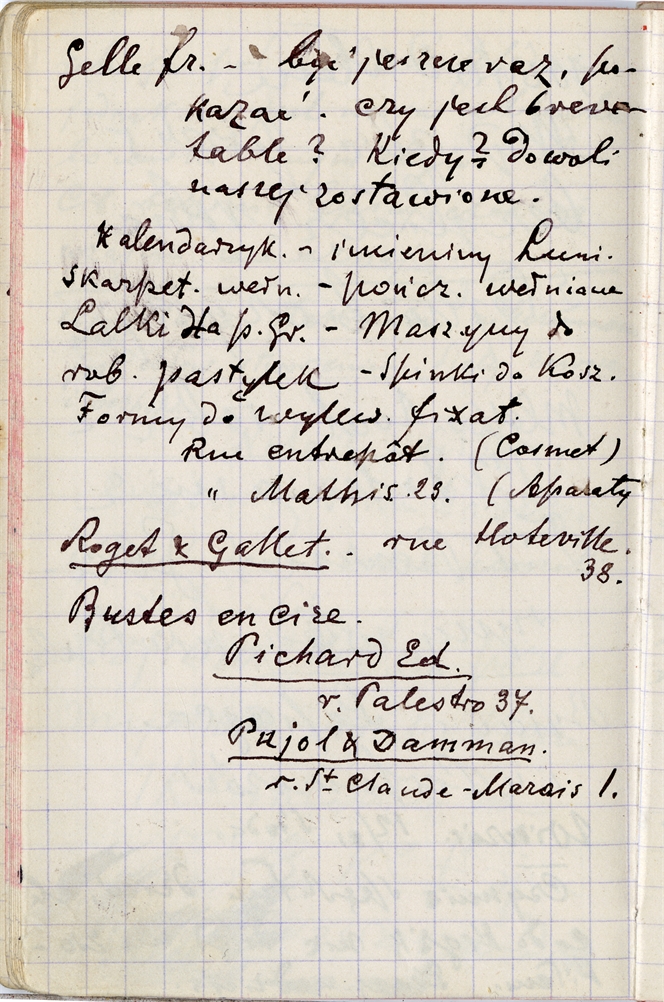 Gelle fr. - być jeszcze raz, po-
kazać. czy jest breve-
table? Kiedy? Do woli
naszej zostawione.
Kalendarzyk. - imieniny Luni.
Skarpet. wełn. - pończ. wełniane
Lalki dla p. Gr. - Maszyny do
rob. pastylek - Spinki do Kosz.
Formy do wylew. fixat.
Rue entrepôt. (Cosmet)
" Mathis 23. (Aparaty
Roget & Gallet. . rue Hoteville.
38.
Bustes en cire.
Pichard Ed.
r. Palestro 37.
Pujol & Damman.
r. St Claude-Marais 1.